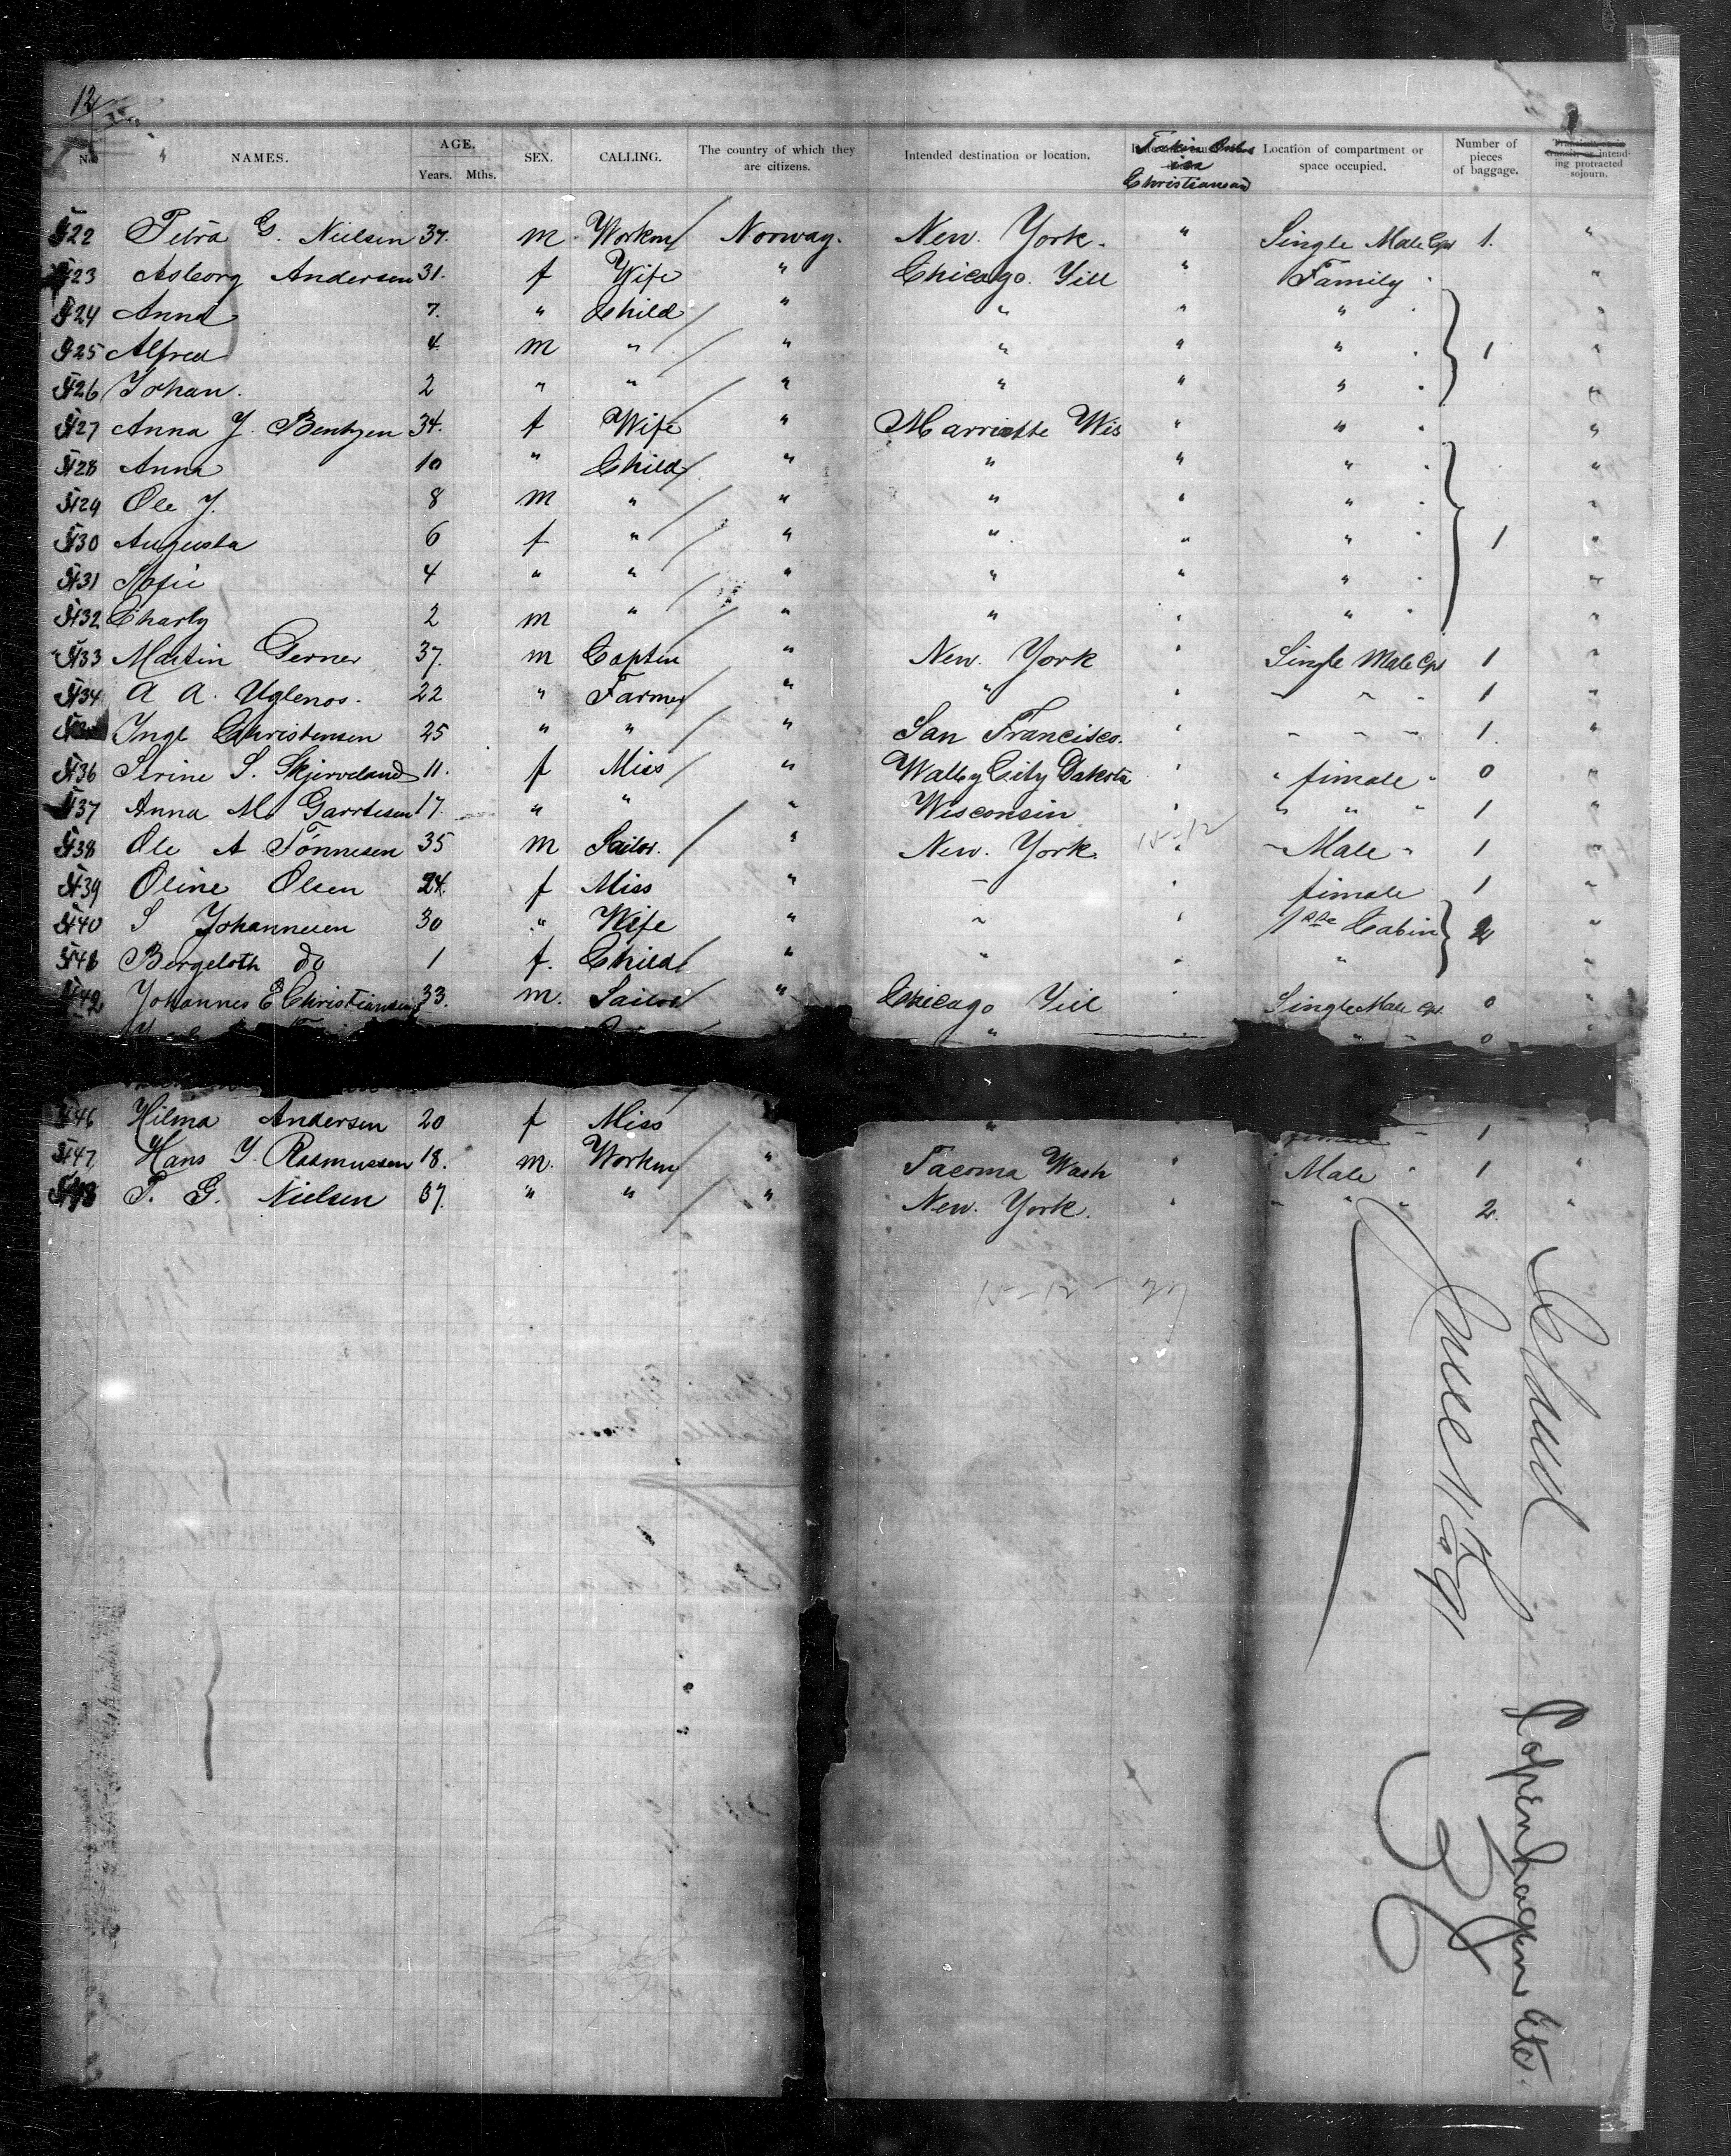 12
No. NAMES. AGE. Years. Mths. SEX. CALLING. The country of which they are citizens. Intended destination or location. Taken on board in Christiansand Location of compartment or space occupied. Number of pieces of baggage. transit, or intending protracted sojourn.
422 Petra G. Nielsen 37. m Workm Norway. New York. " Single Male Cpt 1. "
423 Asborg Andersen 31. f Wife " Chicago. Yill " Family "
424 Anna 7. " Child " " " " "
425 Alfred 4 m " " " " " 1 "
426 Johan. 2 " " " " " " "
427 Anna J. Bentzen 34. f Wife " Marriette Wis " " "
428 Anna 10 " Child " " " " "
429 Ole J. 8 m " " " " " "
430 Augusta 6 f " " " " " 1 "
431 Sofie 4 " " " " " " "
432 Charly 2 m " " " " " "
433 Martin Gerner 37. m Capten " New York " Single Male Cpt 1 "
434 A A. Uglenos. 22 " Farmer " " " " " " 1 "
Inge Christensen 25 " " " San Francisco. " " " " 1. "
436 Serine S. Skjerveland 11. f Miss " Walley City Dakota " " fimale " 0 "
437 Anna M. Garrtesen 17. " " " Wisconsin " " " " 1 "
438 Ole A Tönnesen 35 m Sailor. " New. York " " Male " 1 "
439 Oline Olsen 24. f Miss " " " fimale 1 "
440 S Johannesen 30 " Wife " " " 1ste Cabin 2 "
Bergeloth do 1 f. Child " " " " "
442 Johannes E Christiansen 33. m. Sailor " Chicago Yill " Single Male Cpt. 0 "
" " " 0 "
446 Hilma Andersen 20 f Miss " fimale " 1 "
447 Hans J. Rasmussen 18. m. Workm " Tacoma Wash " Male " 1 "
448 P. G. Nielsen 37. " " " New. York. " " " " 2. "
Copenhagen etc.